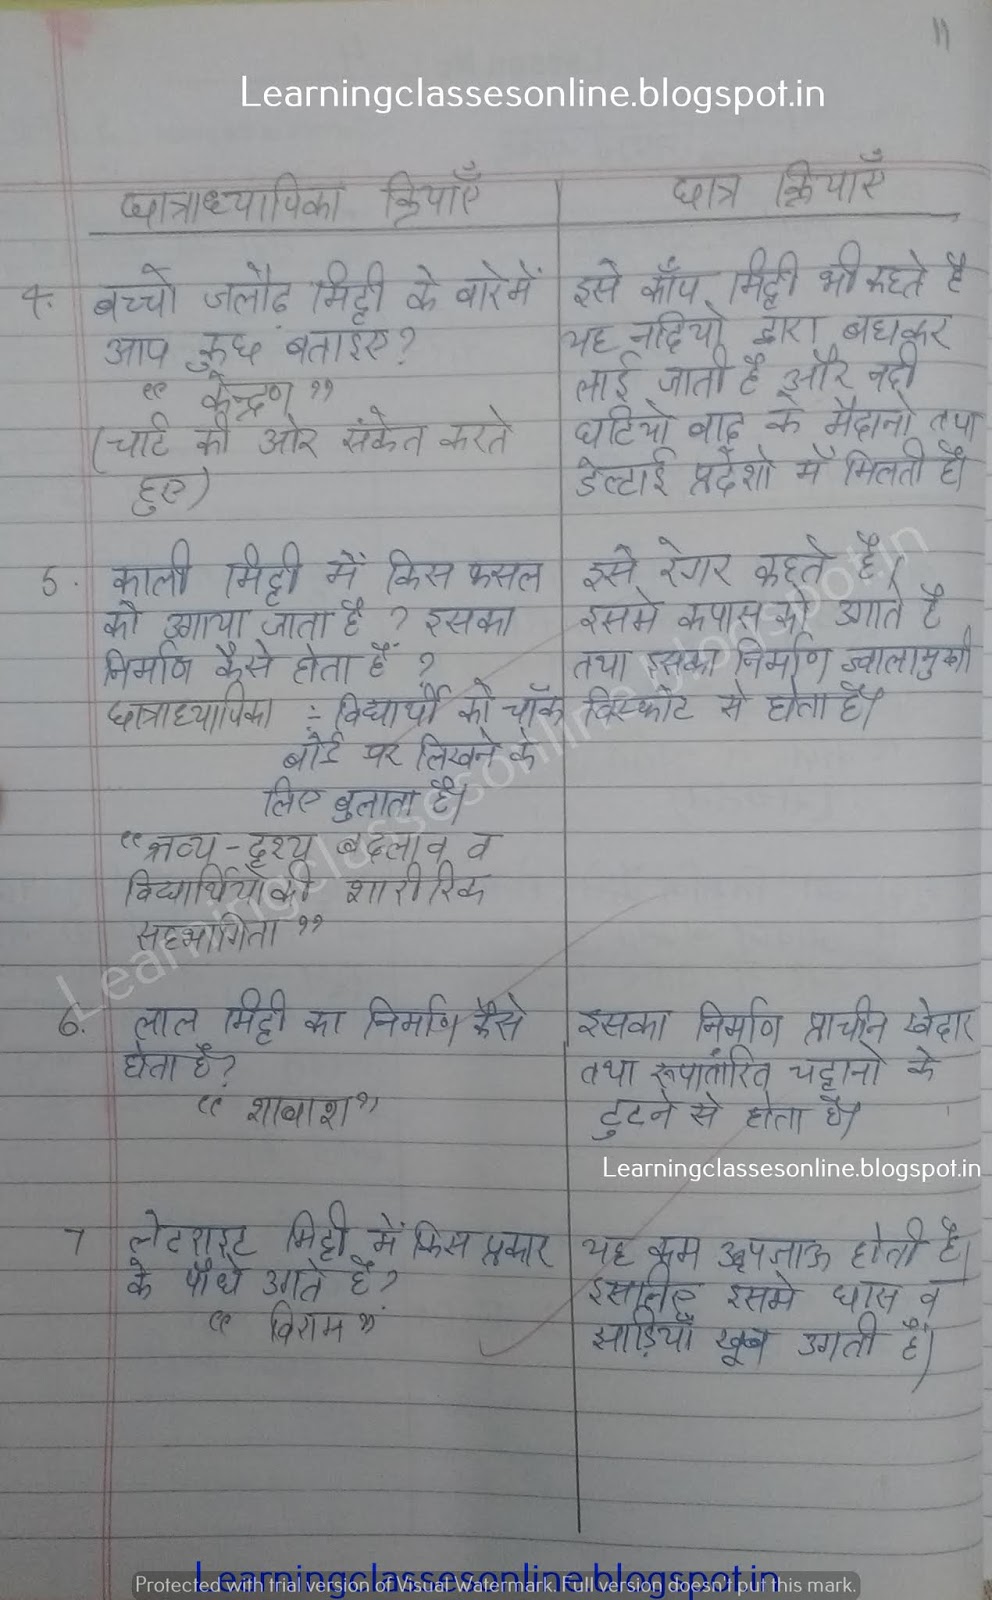 11
Learningclassesonline.blogspot.in
छात्राध्यापिका क्रियाएँ
छात्र क्रियाएँ
4. बच्चो जलौढ़ मिट्टी के बारे में
आप कुछ बताइए?
“ केन्द्रण ”
(चार्ट की ओर संकेत करते
हुए)
इसे काँप मिट्टी भी कहते है
यह नदियो द्वारा बहाकर
लाई जाती है और नदी
घटियो बाढ़ के मैदानो तथा
डेल्टाई प्रदेशो में मिलती है।
5. काली मिट्टी में किस फसल
को उगाया जाता है ? इसका
निर्माण कैसे होता हैं ?
छात्राध्यापिका :- विद्यार्थी को चॉक
बोर्ड पर लिखने के
लिए बुलाता है।
“श्रव्य-दृश्य बदलाव व
विद्यार्थियो की शारीरिक
सहभागिता ”
इसे रेगर कहते है।
इसमे कपास को उगाते है
तथा इसका निर्माण ज्वालामुखी
विस्फोट से होता है।
Learningclassesonline.blogspot.in
6. लाल मिट्टी का निर्माण कैसे
होता है?
“ शाबाश”
इसका निर्माण प्राचीन रवेदार
तथा रूपांतरित चट्टानो के
टुटने से होता है।
Learningclassesonline.blogspot.in
7 लेटराइट मिट्टी में किस प्रकार
के पौधे उगते है?
“ विराम ”
यह कम उपजाऊ होती है।
इसलिए इसमे घास व
झाड़ियाँ खूब उगती हैं।
Learningclassesonline.blogspot.in
Protected with trial version of Visual Watermark. Full version doesn't put this mark.